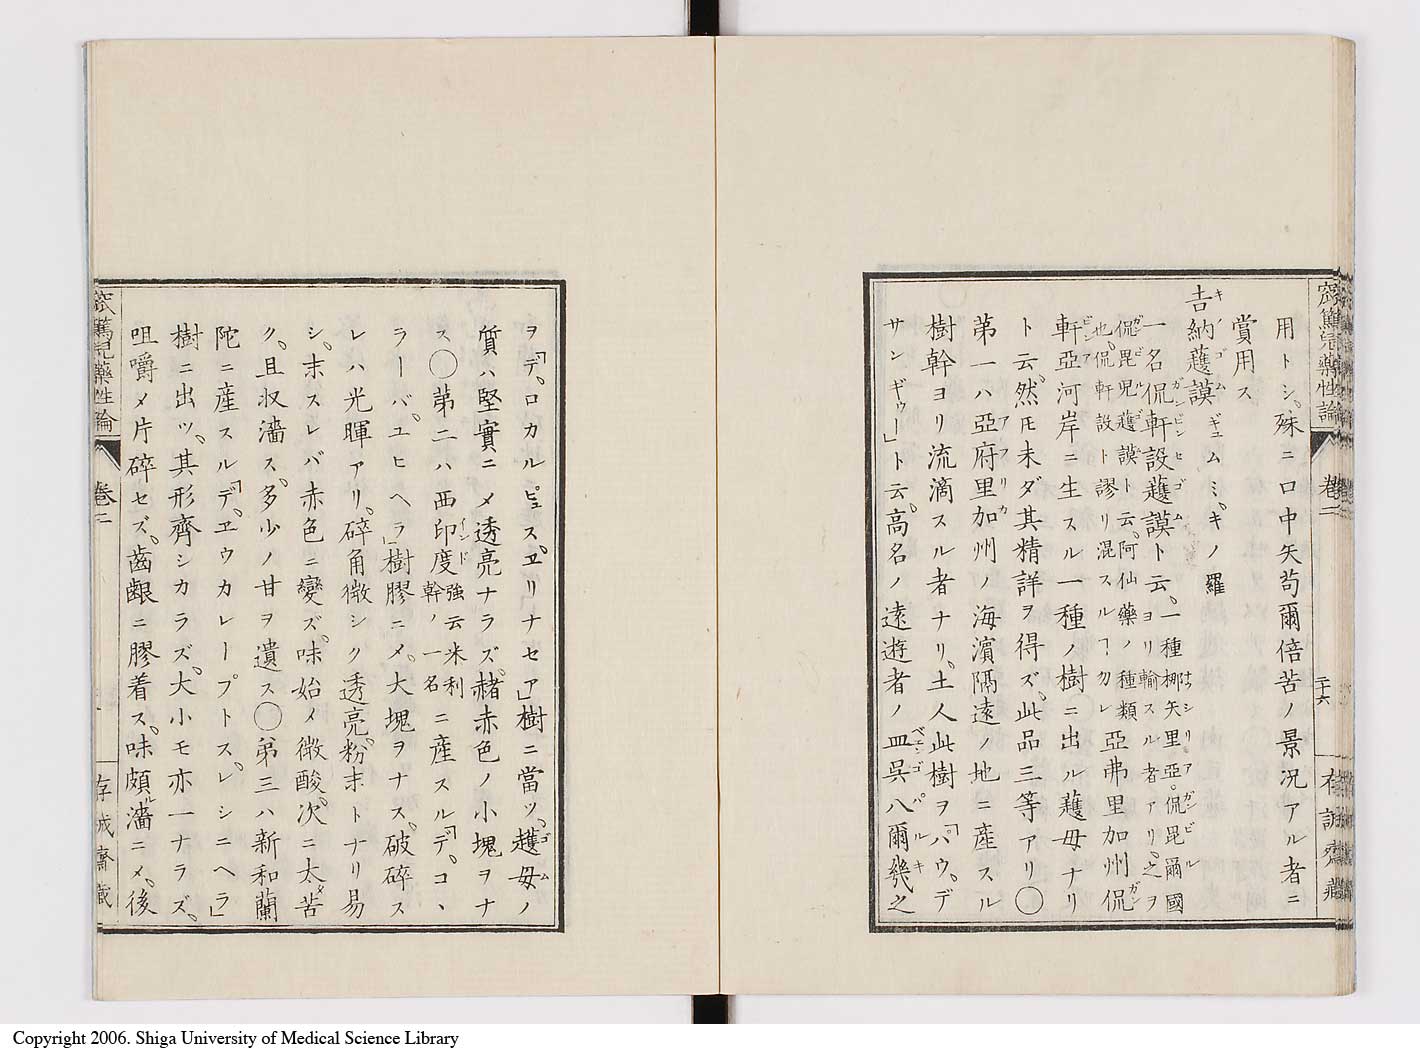 用トシ、殊ニ口中矢苟爾倍苦ノ景况アル者ニ
賞用ス
吉納護謨 ギュムミ、キノ 羅
一名侃軒設護謨ト云、一種挪矢里亞。侃昆爾國
ヨリ輸スル者アリ、之ヲ
侃毘児護謨ト云、阿仙藥ノ種類
也、侃軒設ト謬リ混スルヿカレ 亞弗里加州侃
軒亞河岸ニ生スル一種ノ樹ニ出ル護母ナリ
ト云、然㠪未ダ其精詳ヲ得ズ、此品三等アリ〇
第一ハ亞府里加州ノ海濵隔遠ノ地ニ産スル
樹幹ヨリ流滴スル者ナリ、土人此樹ヲ「パウ、デ
サンギゥー」ト云、高名ノ遠遊者ノ皿呉八爾幾之
ヲ「デ、ロカルピュス、ヱリナセア」樹ニ當ツ、護母ノ
質ハ堅實ニ〆透亮ナラズ、赭赤色ノ小塊ヲナ
ス〇第二ハ西印度 強云米利
幹ノ一名 ニ産スル「デ、コヽ
ラーバ、ユヒヘラ」樹膠ニ〆、大塊ヲナス、破碎ス
レハ光暉アリ、碎角微シク透亮、粉末トナリ易
シ、末スレバ赤色ニ變ズ、味始メ微酸、次ニ太苦
ク、且収濇ス、多少ノ甘ヲ遺ス〇第三ハ新和蘭
陀ニ産スル「デ、ヱウカレープトス、レシニヘラ」
樹ニ出ツ、其形齊シカラズ、大小モ亦一ナラズ、
咀嚼〆片碎セズ、齒齦ニ膠着ス、味頗ル濇ニ〆、後
窊篤児藥性論
卷二
二十六
存誠齋藏
窊篤児藥性論
卷二
存誠齋藏
Copyright 2006. Shiga University of Medical Science Library